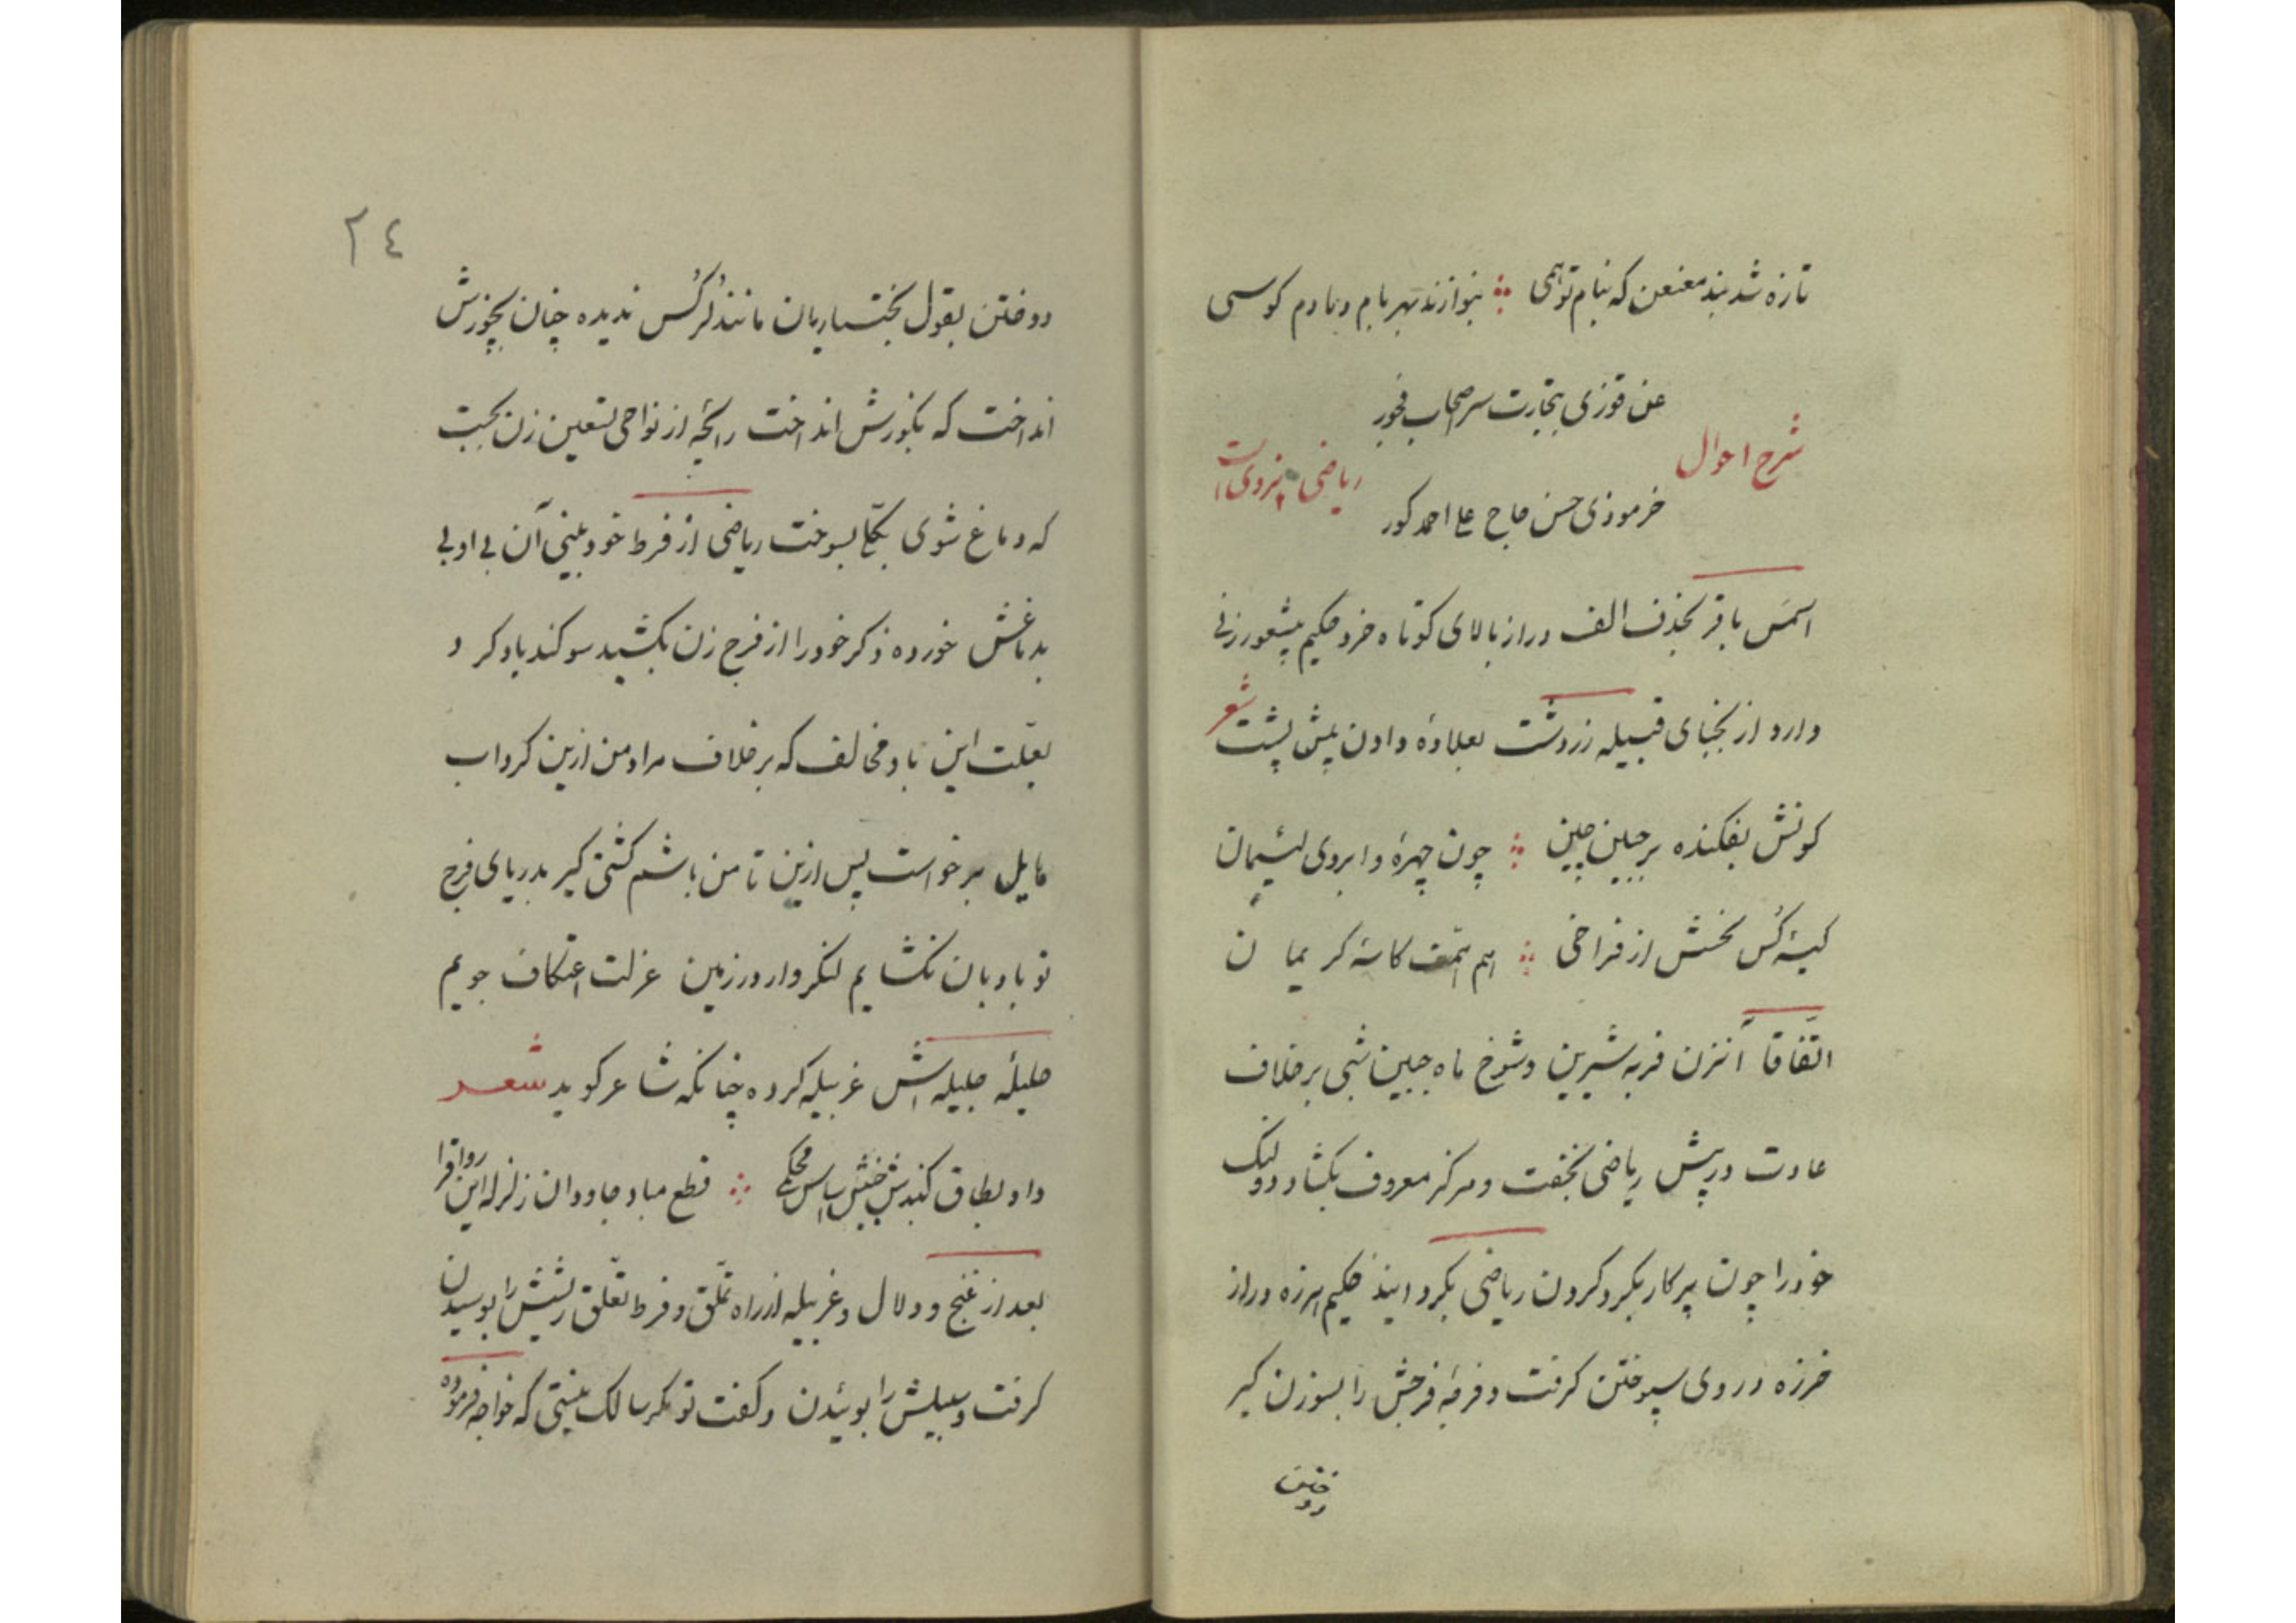 تازه شد بند معنعن که بنام تو همی ∴ بنوازند بهر بام و بادم کوسی
عن قوزی بتجارت سر صحاب فجور
شرح احوال
ریاضی یزدی است
خرموذی حسن حاج علی احمد کور
اسمش باقر بحذف الف دراز بالای کوتاه خرد حکیم بیشعور زنی
دارد از نجبای قبیله زردشت بعلاوهٔ دادن پیش پشت شعر
کونش بفکنده بر جبین چین ∴ چون چهرهٔ و ابروی لئیمان
کیسهٔ کس بخشش از فراخی ∴ هم همت کاسهٔ کریمان
اتفاقاً آنزن فربه شیرین و شوخ ماه جبین شبی برخلاف
عادت در پیش ریاضی بخفت و مرکز معروف بکشاد دو لنگ
خود را چون پرکار بکرد کردن ریاضی بکرد ایند حکیم هرزه دراز
خرزه در وی سپوختن کرفت و فرجهٔ فرجش را بسوزن کیر
دوختن
۲٤
دوختن بقول بختیاریان مانند کر کس ندیده چنان بچوزش
انداخت که بکوزش انداخت رایحهٔ از نواحی لتعین زن بجست
که دماغ شوی بکلی بسوخت ریاضی از فرط خود بینی آن بی ادبی
بدماغش خورده ذکر خود را از فرج زن بکشید سوکند یاد کرد
بعلت این باد مخالف که برخلاف مراد من ازین کرداب
هایل برخواست پس ازین تا من باشم کشتی کیر بدریای فرج
تو بادبان نکشایم لنکروار در زمین عزلت اعتکاف جویم
حلیلهٔ جلیله اش غربیله کرده چنانکه شاعر کوید شعر
داد بطاق کنبدش جنبش اساس محکمی ∴ قطع مباد جاودان زلزله این رواق را
بعد از غنج و دلال و غربیله از راه تملق و فرط تعلق ریشش را بوسیدن
کرفت و سبیلش را بوئیدن و کفت تو مکر سالک نیستی که خواجه فرموده